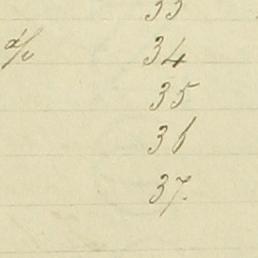 33
a/c 34
35
36
37.